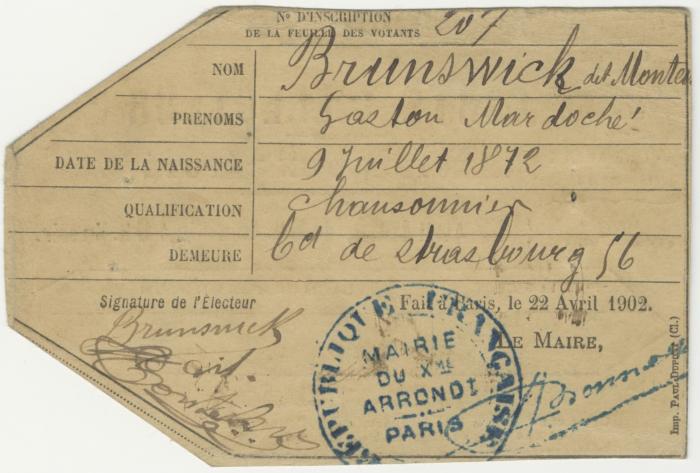 No D'INSCRIPTION
DE LA FEUILLE DES VOTANTS 207
NOM Brunswick dit Monte
PRÉNOMS Gaston Mardoché
DATE DE LA NAISSANCE 9 Juillet 1872
QUALIFICATION chansonnier
DEMEURE Bd de Strasbourg 56
Signature de l'Électeur
Fait à Paris, le 22 Avril 1902.
Brunswick
dit
LE MAIRE,
RÉPUBLIQUE FRANÇAISE
MAIRIE
DU Xme
ARRONDt
PARIS
Imp. PAUL DUPONT (Cl.)